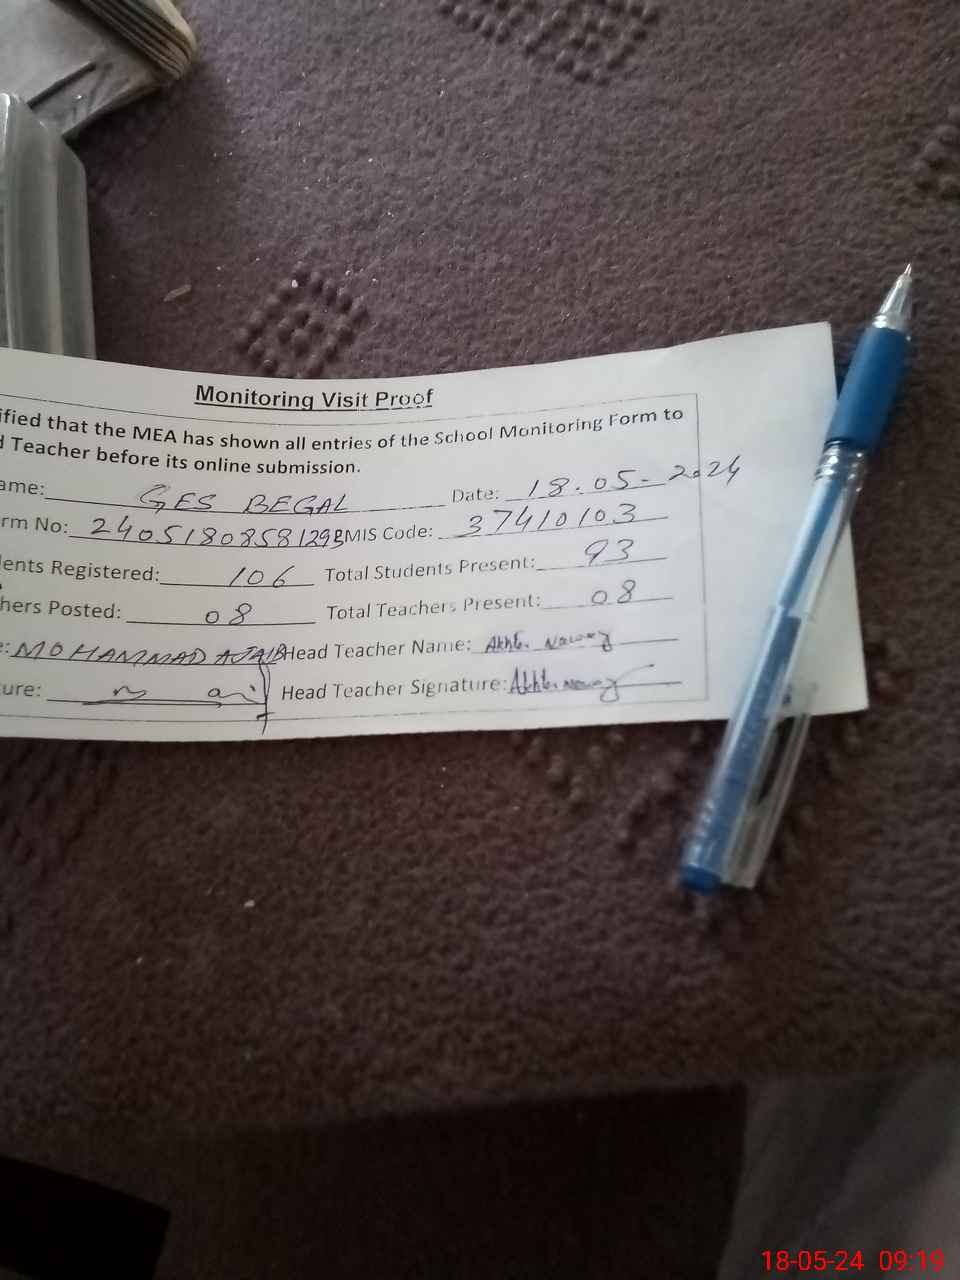 Monitoring Visit Proof
ified that the MEA has shown all entries of the School Monitoring Form to
d Teacher before its online submission.
ame: GES BEGAL Date: 18.05-2024
rm No: 2405180858129 EMIS Code: 37410103
lents Registered: 106 Total Students Present: 93
hers Posted: 08 Total Teachers Present: 08
e: MOHAMMAD AJAIB Head Teacher Name: Akhter Nawaz
ure: Head Teacher Signature: Akhter Nawaz
18-05-24 09:19